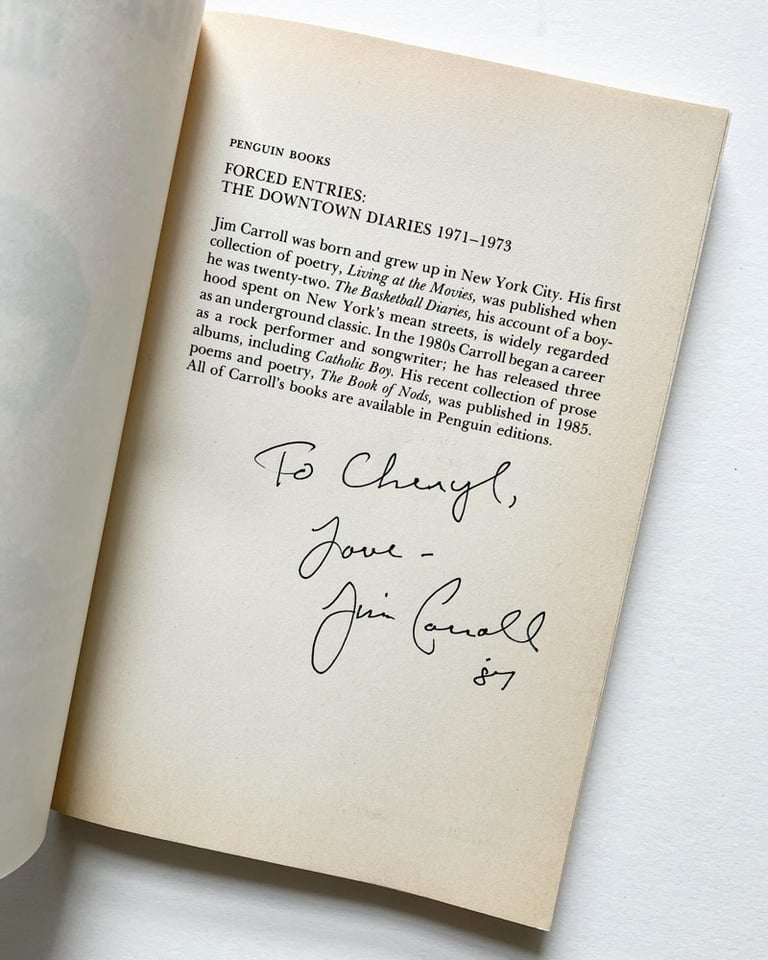 PENGUIN BOOKS
FORCED ENTRIES:
THE DOWNTOWN DIARIES 1971–1973
Jim Carroll was born and grew up in New York City. His first
collection of poetry, Living at the Movies, was published when
he was twenty-two. The Basketball Diaries, his account of a boy-
hood spent on New York's mean streets, is widely regarded
as an underground classic. In the 1980s Carroll began a career
as a rock performer and songwriter; he has released three
albums, including Catholic Boy. His recent collection of prose
poems and poetry, The Book of Nods, was published in 1985.
All of Carroll's books are available in Penguin editions.
To Cheryl,
Love -
Jim Carroll
'87